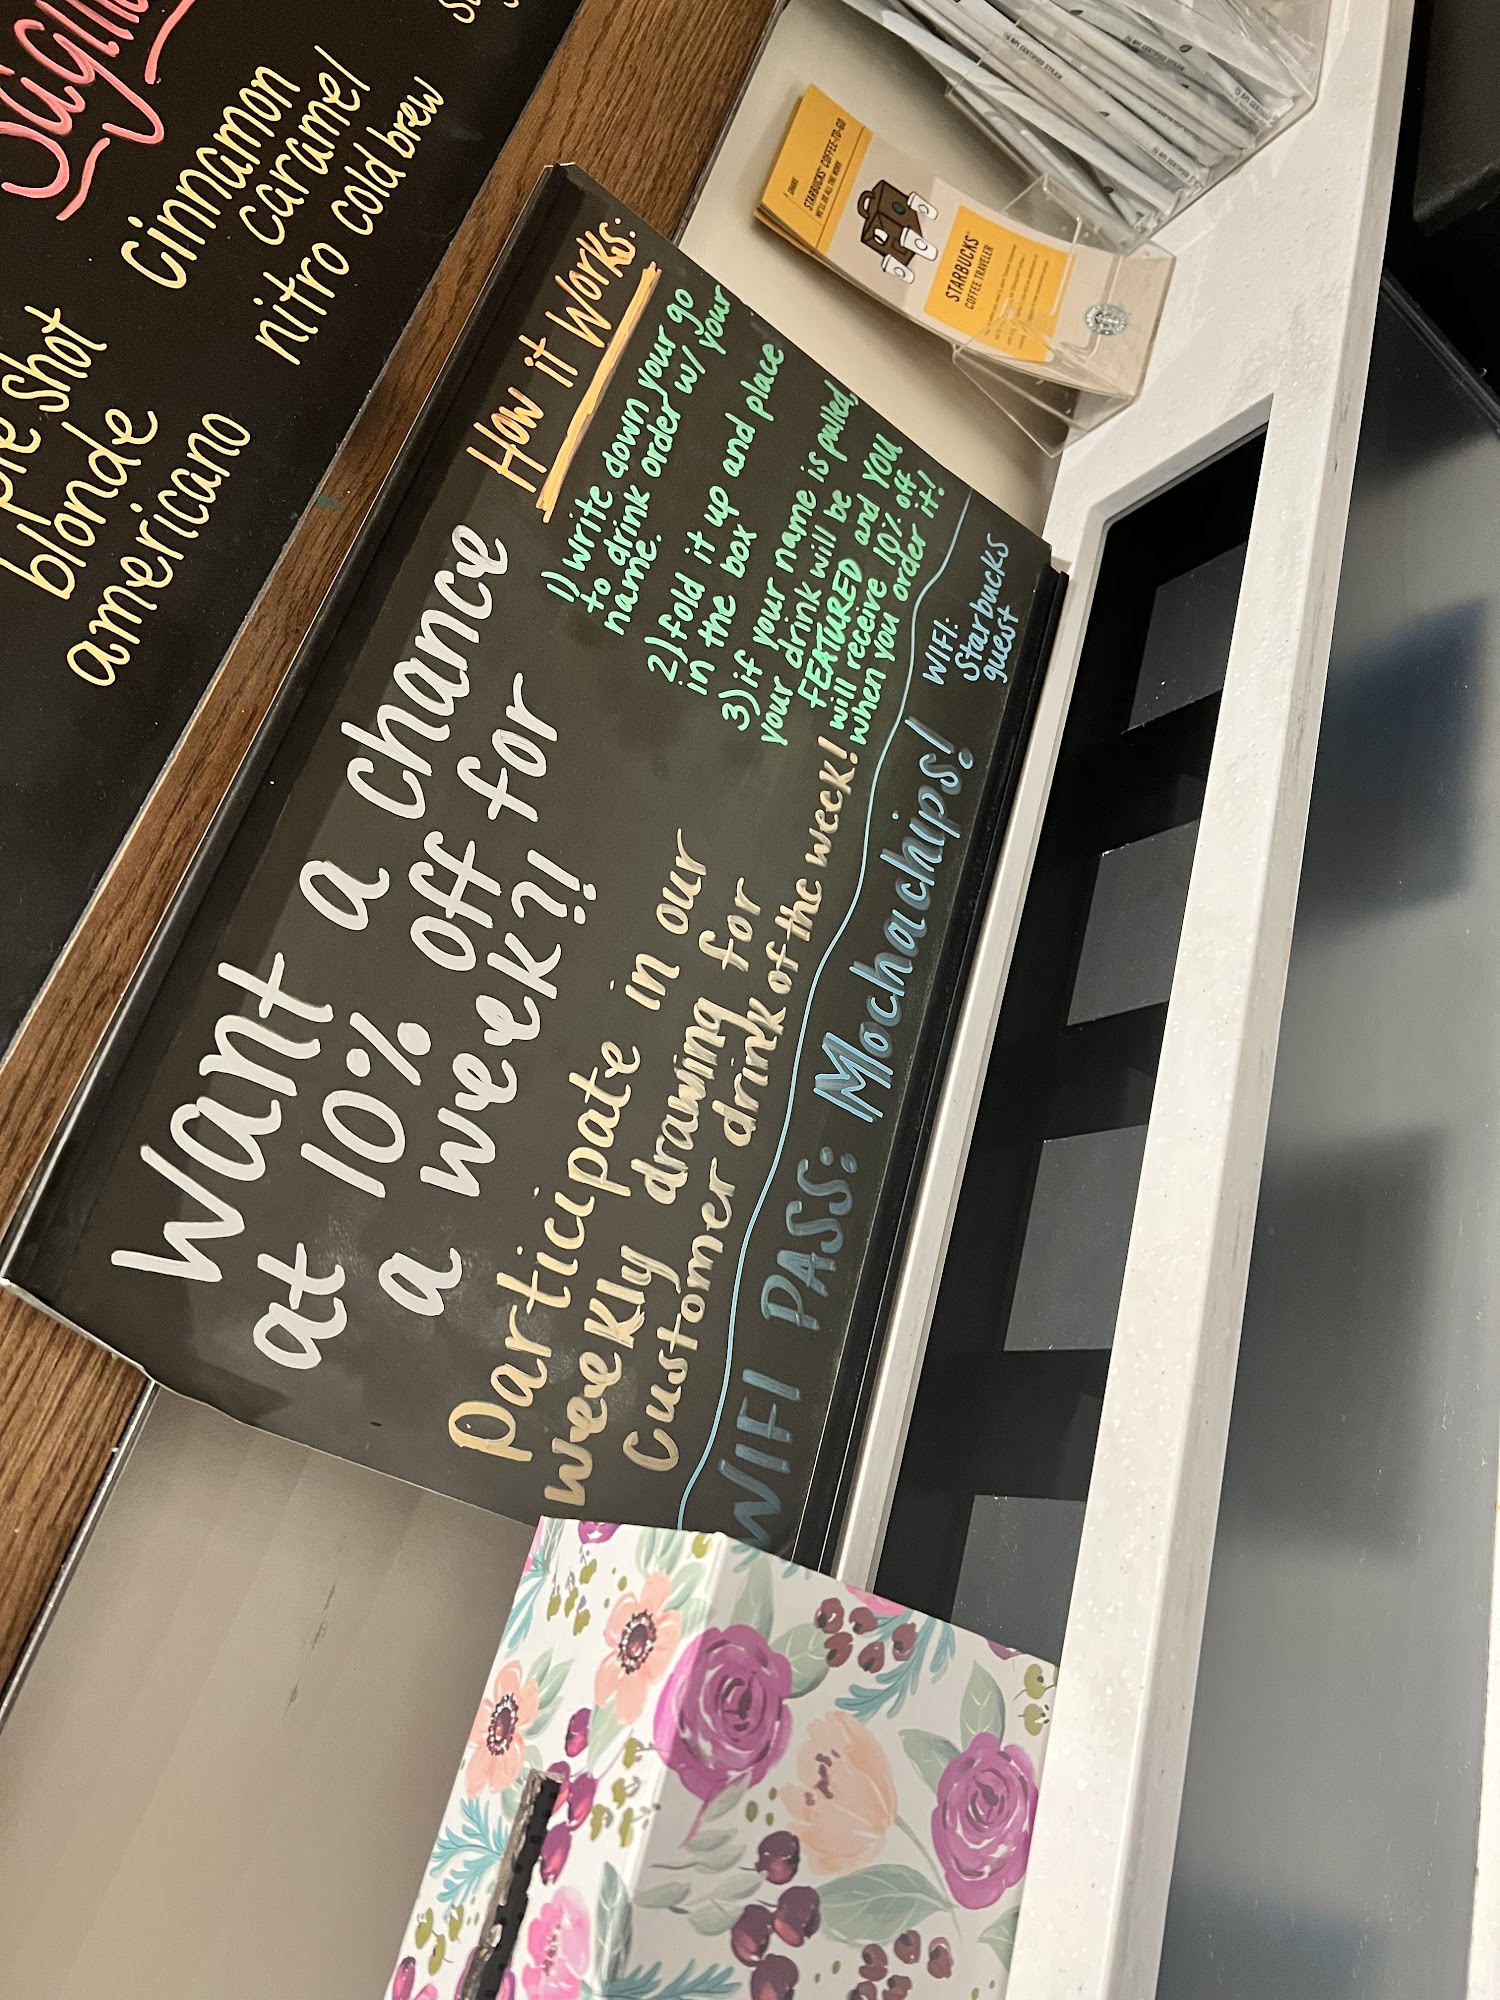 cinnamon
caramel
nitro cold brew
shot
blonde
americano
Want a chance
at 10% off for
a week?!
Participate in our
weekly drawing for
customer drink of the week!
How it works:
1) write down your go
to drink order w/ your
name.
2) fold it up and place
in the box
3) if your name is pulled,
your drink will be
FEATURED and YOU
will receive 10% off
when you order it!
WIFI PASS: Mochachips!
WIFI:
Starbucks
guest
STARBUCKS® COFFEE-TO-GO
WE'LL DO ALL THE WORK
STARBUCKS®
COFFEE TRAVELER